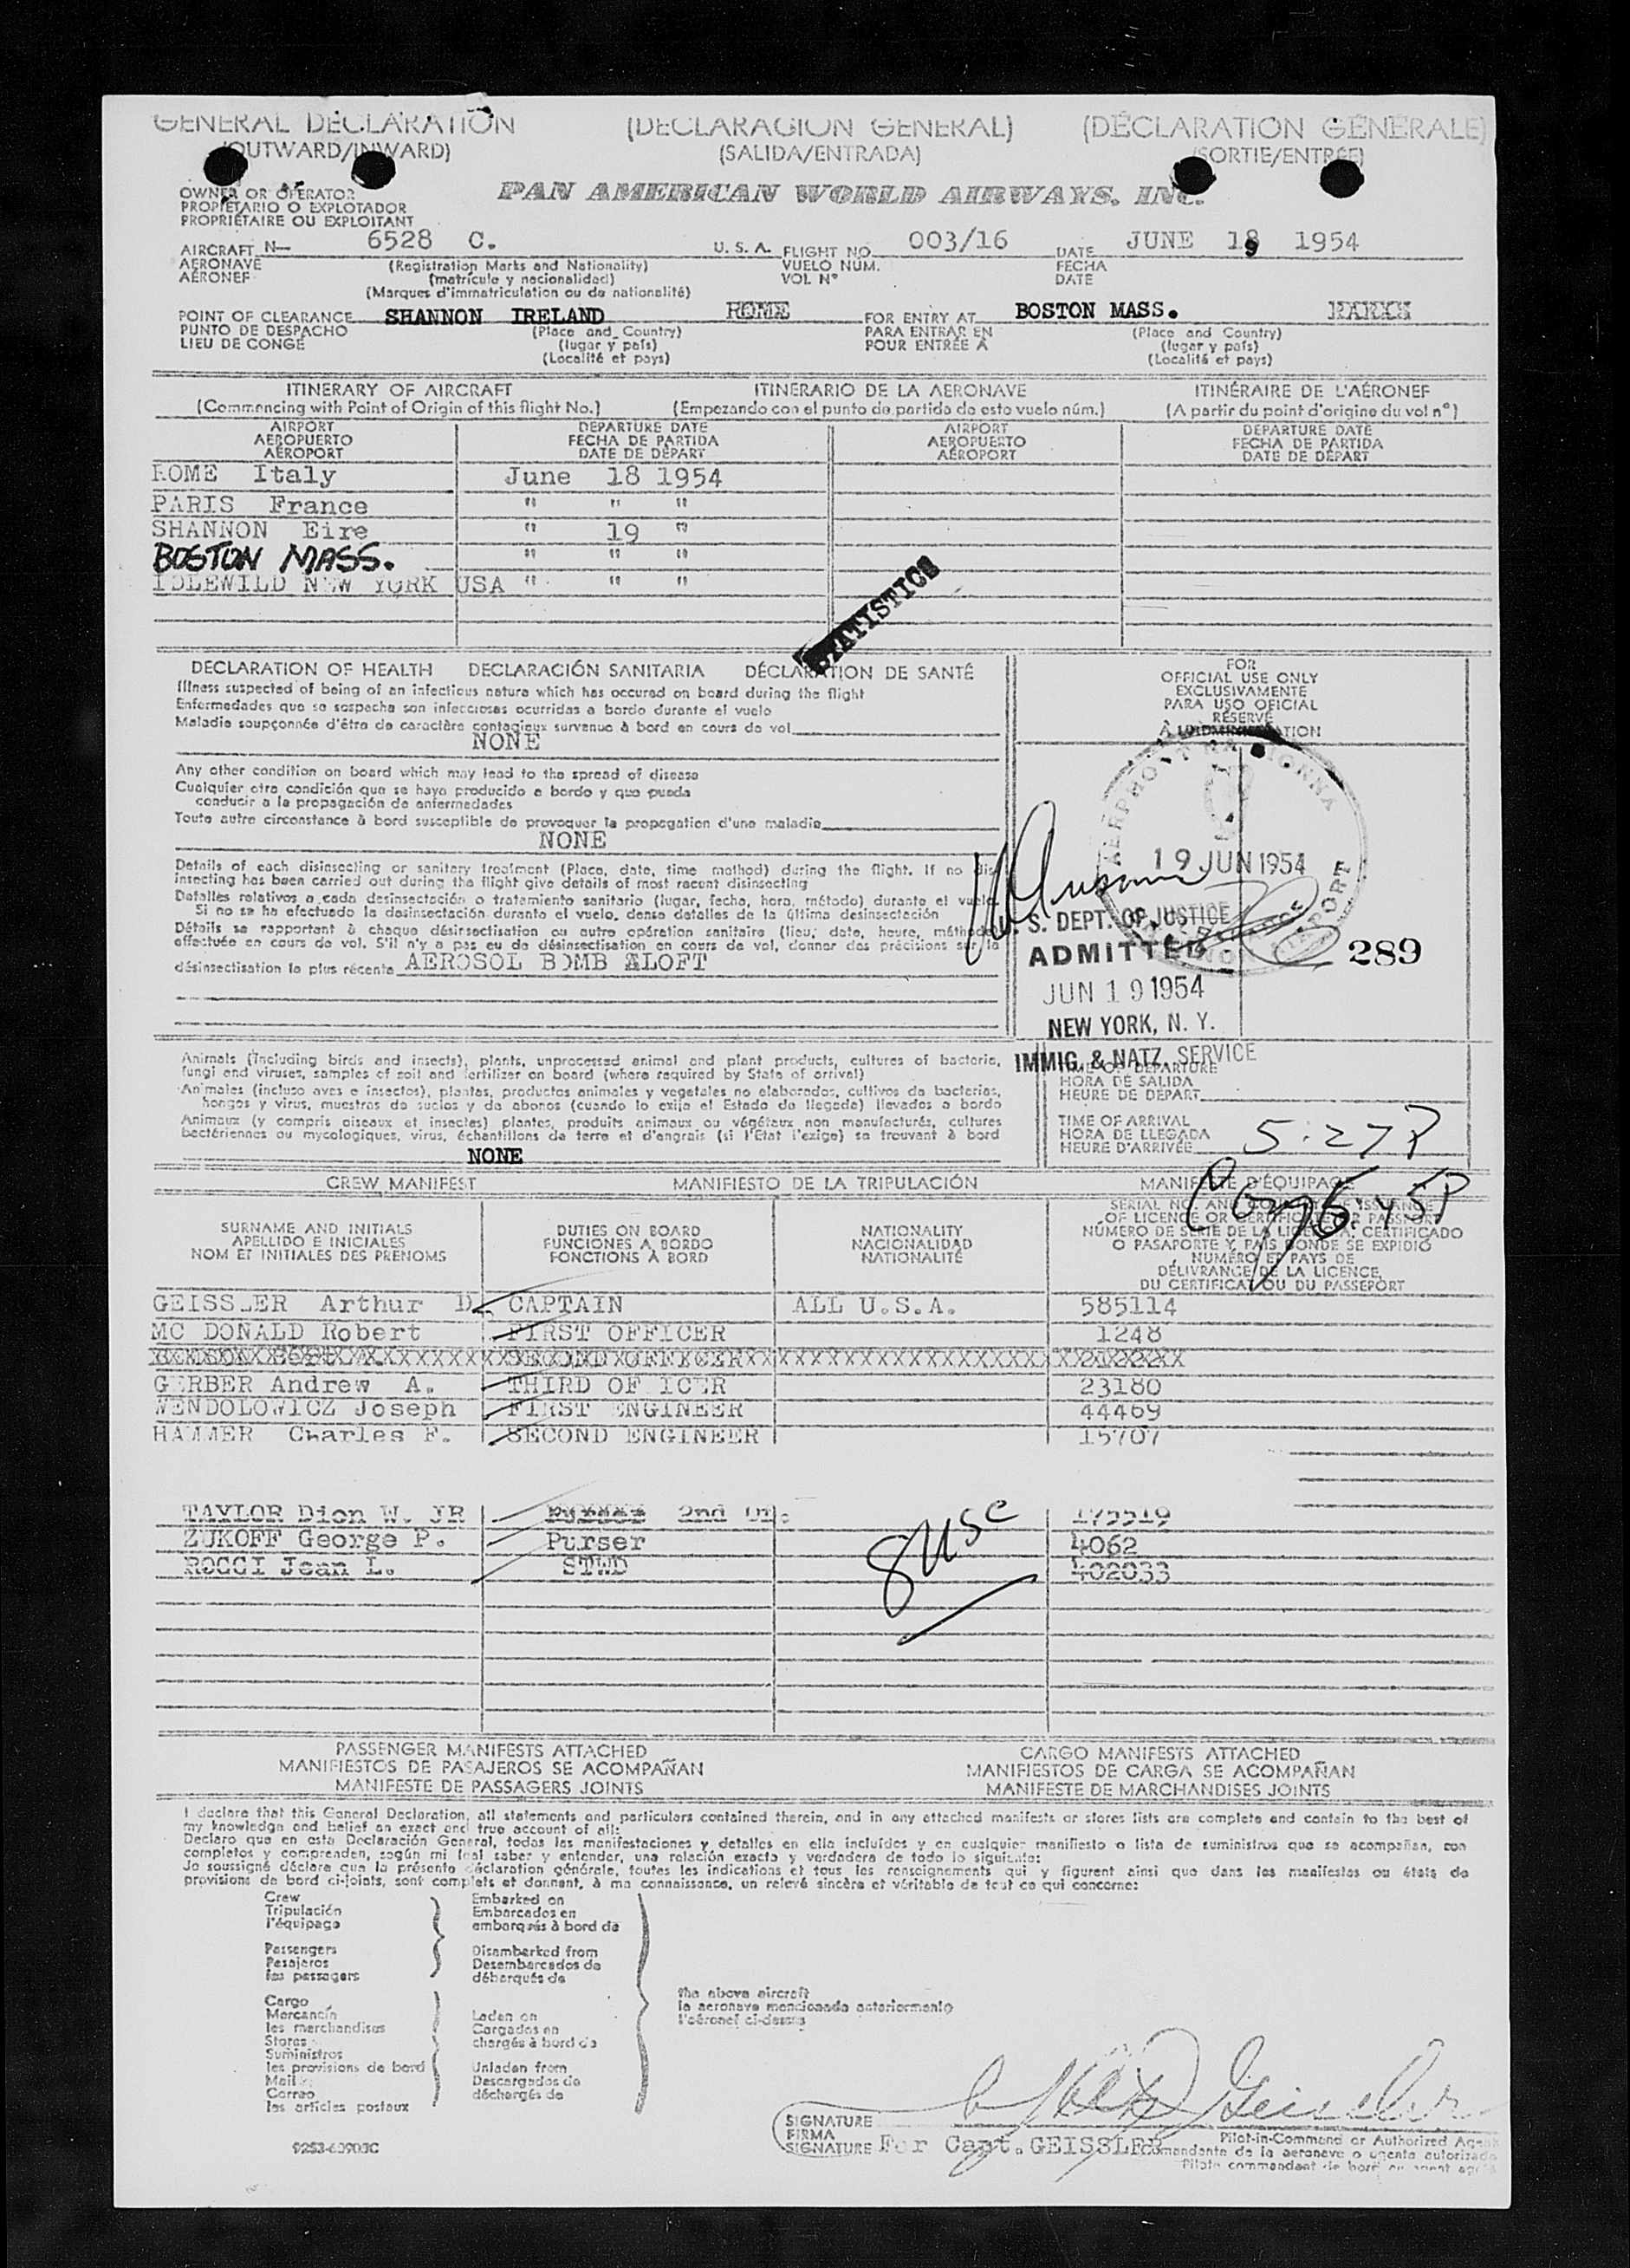 GENERAL DECLARATION (DECLARACION GENERAL) (DÉCLARATION GÉNÉRALE)
(OUTWARD/INWARD) (SALIDA/ENTRADA) (SORTIE/ENTRÉE)
OWNER OR OPERATOR
PROPIETARIO O EXPLOTADOR
PROPRIÉTAIRE OU EXPLOITANT
PAN AMERICAN WORLD AIRWAYS, INC.
AIRCRAFT N— 6528 C. U. S. A. FLIGHT NO. 003/16 DATE JUNE 19 1954
AERONAVE (Registration Marks and Nationality) VUELO NÚM. FECHA
AÉRONEF (matrícula y nacionalidad) VOL N° DATE
(Marques d'immatriculation ou de nationalité)
POINT OF CLEARANCE SHANNON IRELAND ROME FOR ENTRY AT BOSTON MASS. PARIS
PUNTO DE DESPACHO (Place and Country) PARA ENTRAR EN (Place and Country)
LIEU DE CONGÉ (lugar y país) POUR ENTRÉE À (lugar y país)
(Localité et pays) (Localité et pays)
ITINERARY OF AIRCRAFT ITINERARIO DE LA AERONAVE ITINÉRAIRE DE L'AÉRONEF
(Commencing with Point of Origin of this flight No.) (Empezando con el punto de partida de esto vuelo núm.) (A partir du point d'origine du vol n°)
AIRPORT DEPARTURE DATE AIRPORT DEPARTURE DATE
AEROPUERTO FECHA DE PARTIDA AEROPUERTO FECHA DE PARTIDA
AÉROPORT DATE DE DÉPART AÉROPORT DATE DE DÉPART
ROME Italy June 18 1954
PARIS France " " "
SHANNON Eire " 19 "
BOSTON MASS. " " "
IDLEWILD NEW YORK USA " " "
STATISTICS
DECLARATION OF HEALTH DECLARACIÓN SANITARIA DÉCLARATION DE SANTÉ
Illness suspected of being of an infectious nature which has occured on board during the flight
Enfermedades que se sospecha son infecciosas ocurridas a bordo durante el vuelo
Maladie soupçonnée d'être de caractère contagieux survenue à bord en cours de vol
NONE
Any other condition on board which may lead to the spread of disease
Cualquier otra condición que se haya producido a bordo y que pueda
conducir a la propagación de enfermedades
Toute autre circonstance à bord susceptible de provoquer la propagation d'une maladie
NONE
Details of each disinsecting or sanitary treatment (Place, date, time method) during the flight. If no dis-
insecting has been carried out during the flight give details of most recent disinsecting
Detalles relativos a cada desinsectación o tratamiento sanitario (lugar, fecha, hora, método) durante el vuelo.
Si no se ha efectuado la desinsectación durante el vuelo, dense detalles de la última desinsectación
Détails se rapportant à chaque désinsectisation ou autre opération sanitaire (lieu, date, heure, méthode)
effectuée en cours de vol. S'il n'y a pas eu de désinsectisation en cours de vol, donner des précisions sur la
désinsectisation la plus récente AEROSOL BOMB ALOFT
FOR
OFFICIAL USE ONLY
EXCLUSIVAMENTE
PARA USO OFICIAL
RÉSERVÉ
À L'ADMINISTRATION
19 JUN 1954
AIRPORT
U. S. DEPT. OF JUSTICE
ADMITTED
289
JUN 19 1954
NEW YORK, N. Y.
IMMIG. & NATZ. SERVICE
Animals (including birds and insects), plants, unprocessed animal and plant products, cultures of bacteria,
fungi and viruses, samples of soil and fertilizer on board (where required by State of arrival)
Animales (incluso aves e insectos), plantas, productos animales y vegetales no elaborados, cultivos de bacterias,
hongos y virus, muestras de suelos y de abonos (cuando lo exija el Estado de llegada) llevados a bordo
Animaux (y compris oiseaux et insectes) plantes, produits animaux ou végétaux non manufacturés, cultures
bactériennes ou mycologiques, virus, échantillons de terre et d'engrais (si l'État l'exige) se trouvant à bord
NONE
TIME OF DEPARTURE
HORA DE SALIDA
HEURE DE DÉPART
TIME OF ARRIVAL
HORA DE LLEGADA
HEURE D'ARRIVÉE 5:27P
6 45P
CREW MANIFEST MANIFIESTO DE LA TRIPULACIÓN MANIFESTE D'ÉQUIPAGE
SURNAME AND INITIALS DUTIES ON BOARD NATIONALITY
APELLIDO E INICIALES FUNCIONES A BORDO NACIONALIDAD
NOM ET INITIALES DES PRÉNOMS FONCTIONS À BORD NATIONALITÉ
SERIAL NO. AND COUNTRY OF ISSUANCE
OF LICENCE OR CERTIFICATE OR PASSPORT
NÚMERO DE SERIE DE LA LICENCIA, CERTIFICADO
O PASAPORTE Y PAÍS DONDE SE EXPIDIÓ
NUMÉRO ET PAYS DE
DÉLIVRANCE DE LA LICENCE,
DU CERTIFICAT OU DU PASSEPORT
GEISSLER Arthur D. CAPTAIN ALL U.S.A. 585114
MC DONALD Robert FIRST OFFICER 1248
SECOND OFFICER
GERBER Andrew A. THIRD OFFICER 23180
WENDOLOWICZ Joseph FIRST ENGINEER 44469
HAMMER Charles F. SECOND ENGINEER 15707
TAYLOR Dion W. JR Purser 2nd Of. 175519
ZUKOFF George P. Purser 4062
ROCCI Jean L. STWD 402033
8 USC
PASSENGER MANIFESTS ATTACHED CARGO MANIFESTS ATTACHED
MANIFIESTOS DE PASAJEROS SE ACOMPAÑAN MANIFIESTOS DE CARGA SE ACOMPAÑAN
MANIFESTE DE PASSAGERS JOINTS MANIFESTE DE MARCHANDISES JOINTS
I declare that this General Declaration, all statements and particulars contained therein, and in any attached manifests or stores lists are complete and contain to the best of
my knowledge and belief an exact and true account of all:
Declaro que en esta Declaración General, todas las manifestaciones y detalles en ella incluídos y en cualquier manifiesto o lista de suministros que se acompañan, son
completos y comprenden, según mi leal saber y entender, una relación exacta y verdadera de todo lo siguiente:
Je soussigné déclare que la présente déclaration générale, toutes les indications et tous les renseignements qui y figurent ainsi que dans les manifestes ou états de
provisions de bord ci-joints, sont complets et donnent, à ma connaissance, un relevé sincère et véritable de tout ce qui concerne:
Crew Embarked on
Tripulación Embarcados en
l'équipage embarqués à bord de
Passengers Disembarked from
Pasajeros Desembarcados de
les passagers débarqués de
the above aircraft
la aeronave mencionada anteriormente
l'aéronef ci-dessus
Cargo
Mercancía Laden on
les marchandises Cargados en
Stores chargés à bord de
Suministros
les provisions de bord Unladen from
Mail Descargados de
Correo déchargés de
les articles postaux
SIGNATURE
FIRMA
SIGNATURE For Capt. GEISSLER
Pilot-in-Command or Authorized Agent
Comandante de la aeronave o agente autorizado
Pilote commandant de bord ou agent agréé
9253-60903C